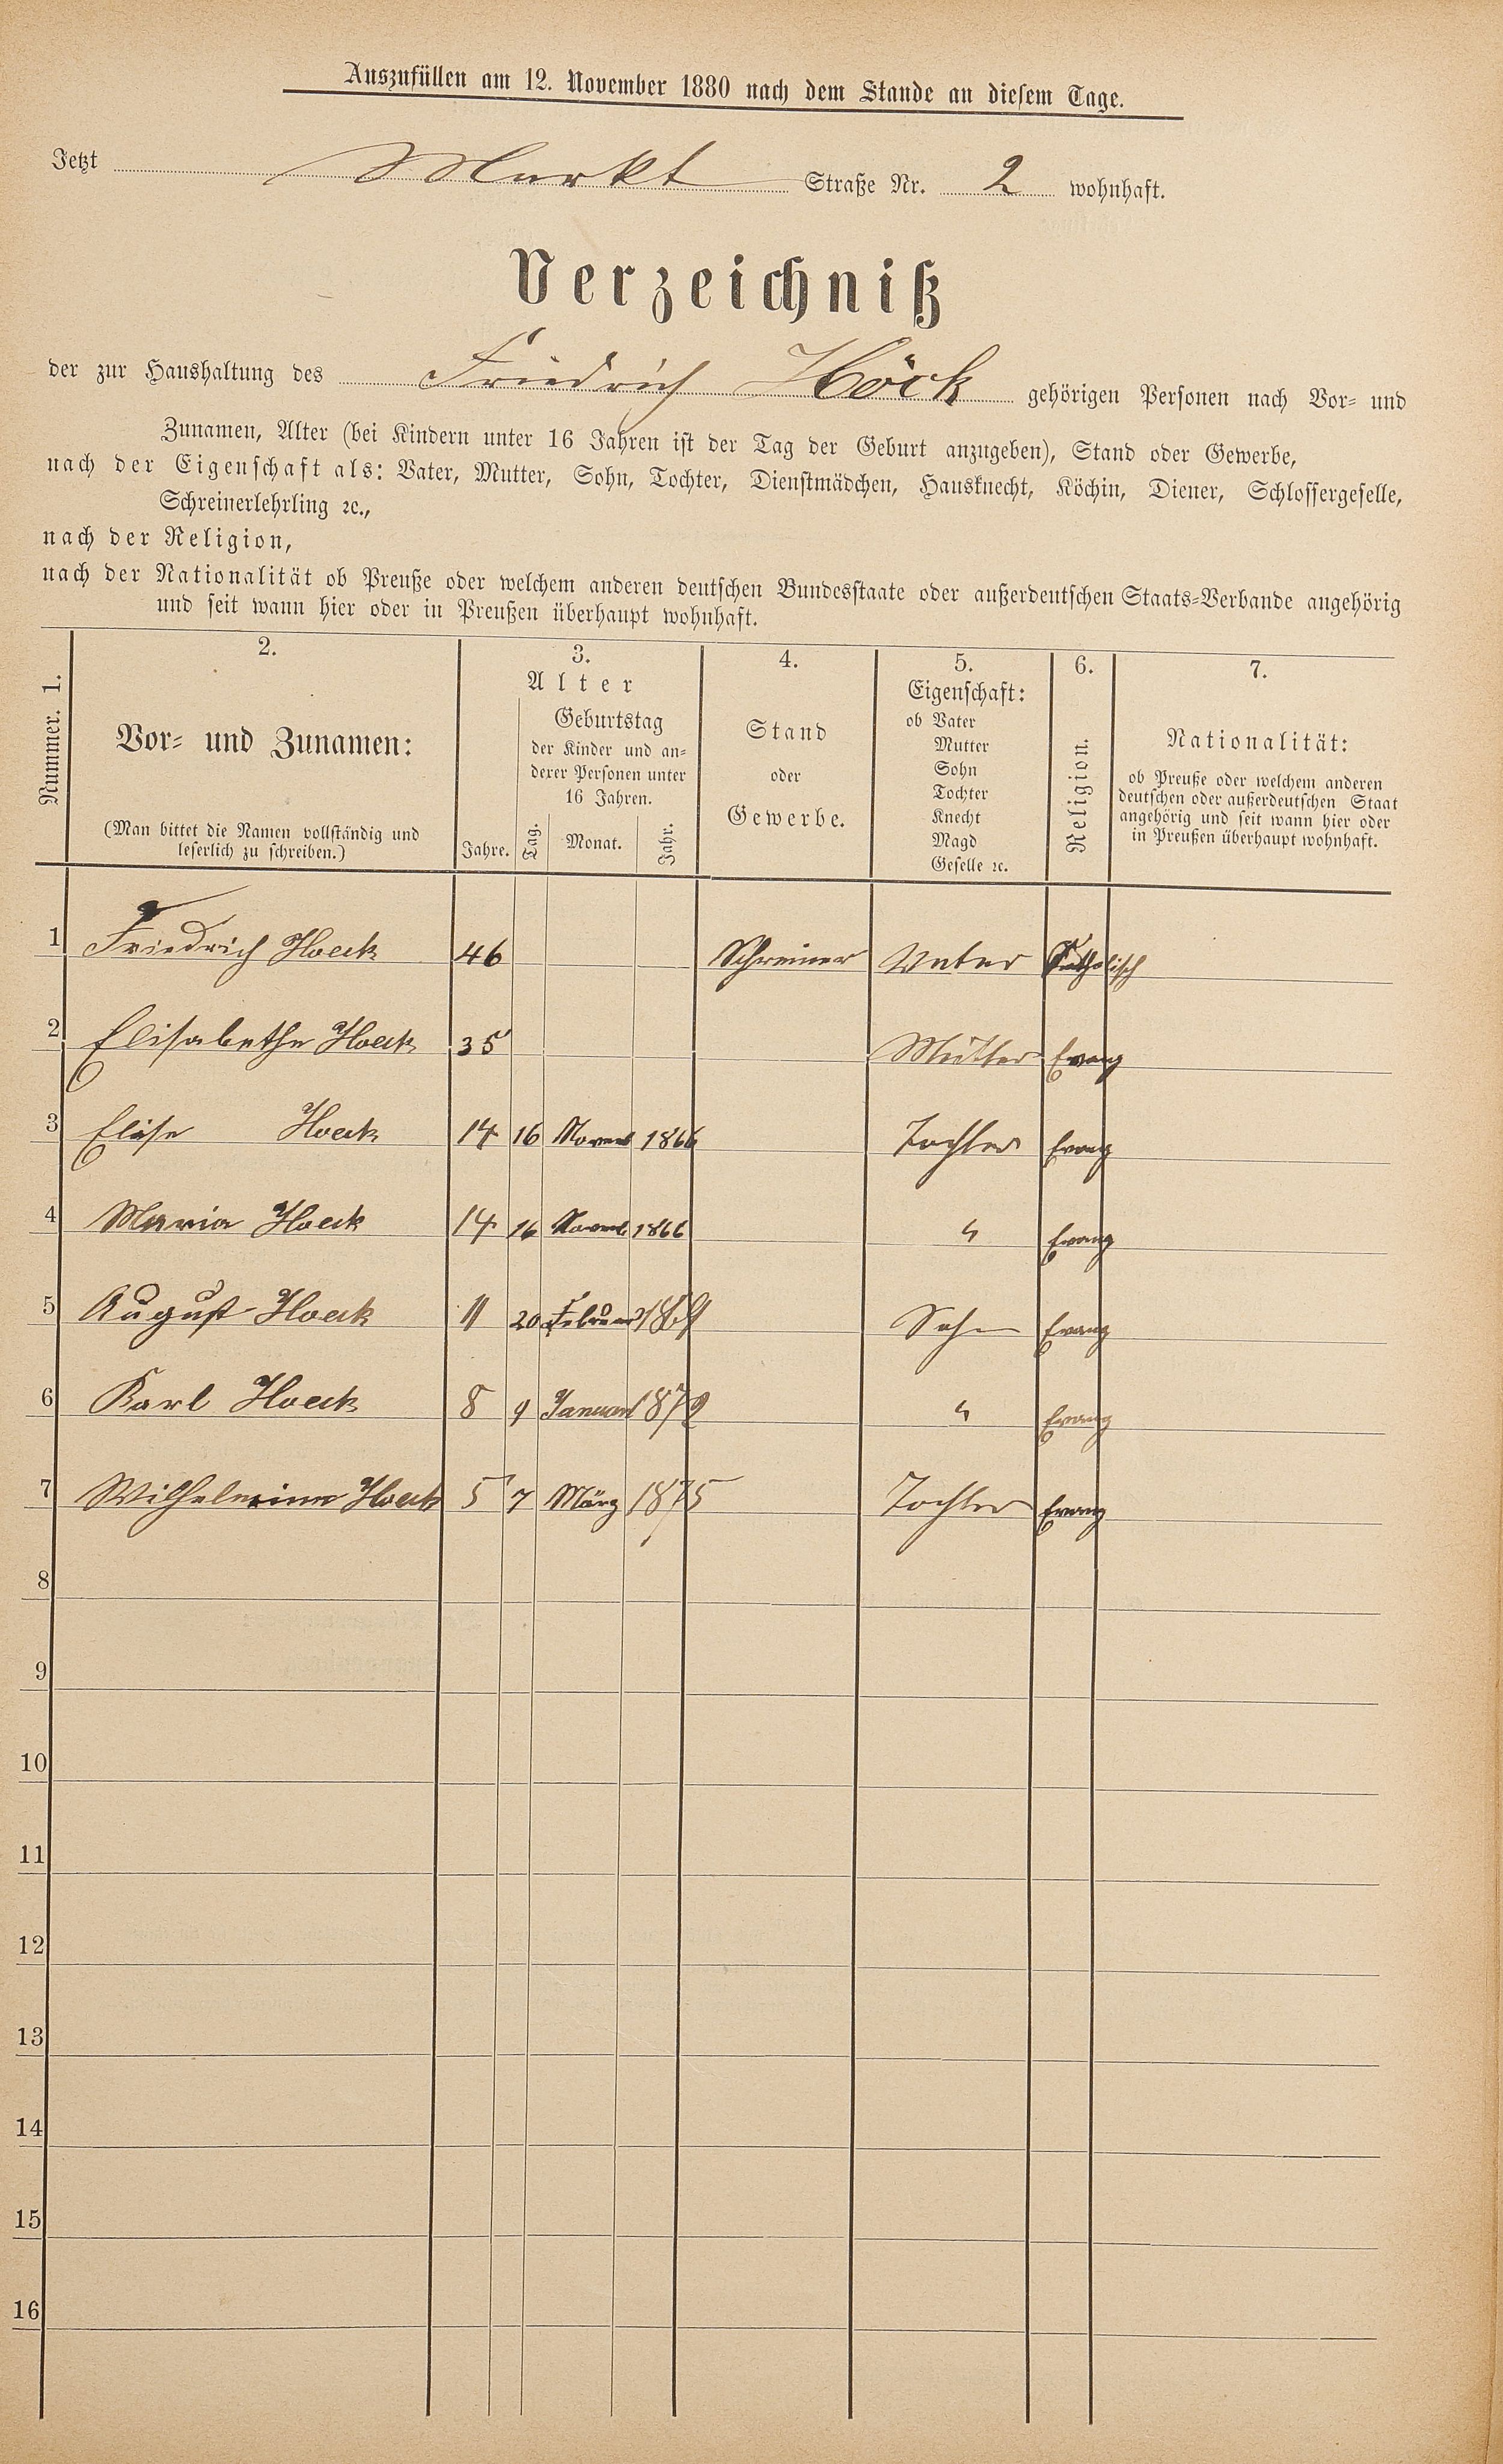 Auszufüllen am 12. November 1880 nach dem Stande an diesem Tage.
Jetzt Markt Straße Nr. 2 wohnhaft.
Verzeichniß
der zur Haushaltung des Friedrich Höck gehörigen Personen nach Vor- und
Zunamen, Alter (bei Kindern unter 16 Jahren ist der Tag der Geburt anzugeben), Stand oder Gewerbe,
nach der Eigenschaft als: Vater, Mutter, Sohn, Tochter, Dienstmädchen, Hausknecht, Köchin, Diener, Schlossergeselle,
Schreinerlehrling ꝛc.,
nach der Religion,
nach der Nationalität ob Preuße oder welchem anderen deutschen Bundesstaate oder außerdeutschen Staats-Verbande angehörig
und seit wann hier oder in Preußen überhaupt wohnhaft.
Nummer. 1.
2.
Vor- und Zunamen:
(Man bittet die Namen vollständig und
leserlich zu schreiben.)
3.
Alter
Jahre.
Geburtstag
der Kinder und an-
derer Personen unter
16 Jahren.
Tag. Monat. Jahr.
4.
Stand
oder
Gewerbe.
5.
Eigenschaft:
ob Vater
Mutter
Sohn
Tochter
Knecht
Magd
Geselle ꝛc.
6.
Religion.
7.
Nationalität:
ob Preuße oder welchem anderen
deutschen oder außerdeutschen Staat
angehörig und seit wann hier oder
in Preußen überhaupt wohnhaft.
1 Friedrich Hoeck 46 Schreiner Vater Katholisch
2 Elisabethe Hoeck 35 Mutter Evang
3 Elise Hoeck 14 16 Novemb 1866 Tochter Evang
4 Maria Hoeck 14 16 Novemb 1866 " Evang
5 August Hoeck 11 20 Februar 1869 Sohn Evang
6 Karl Hoeck 8 9 Januar 1872 " Evang
7 Wilhelmine Hoeck 5 7 März 1875 Tochter Evang
8
9
10
11
12
13
14
15
16